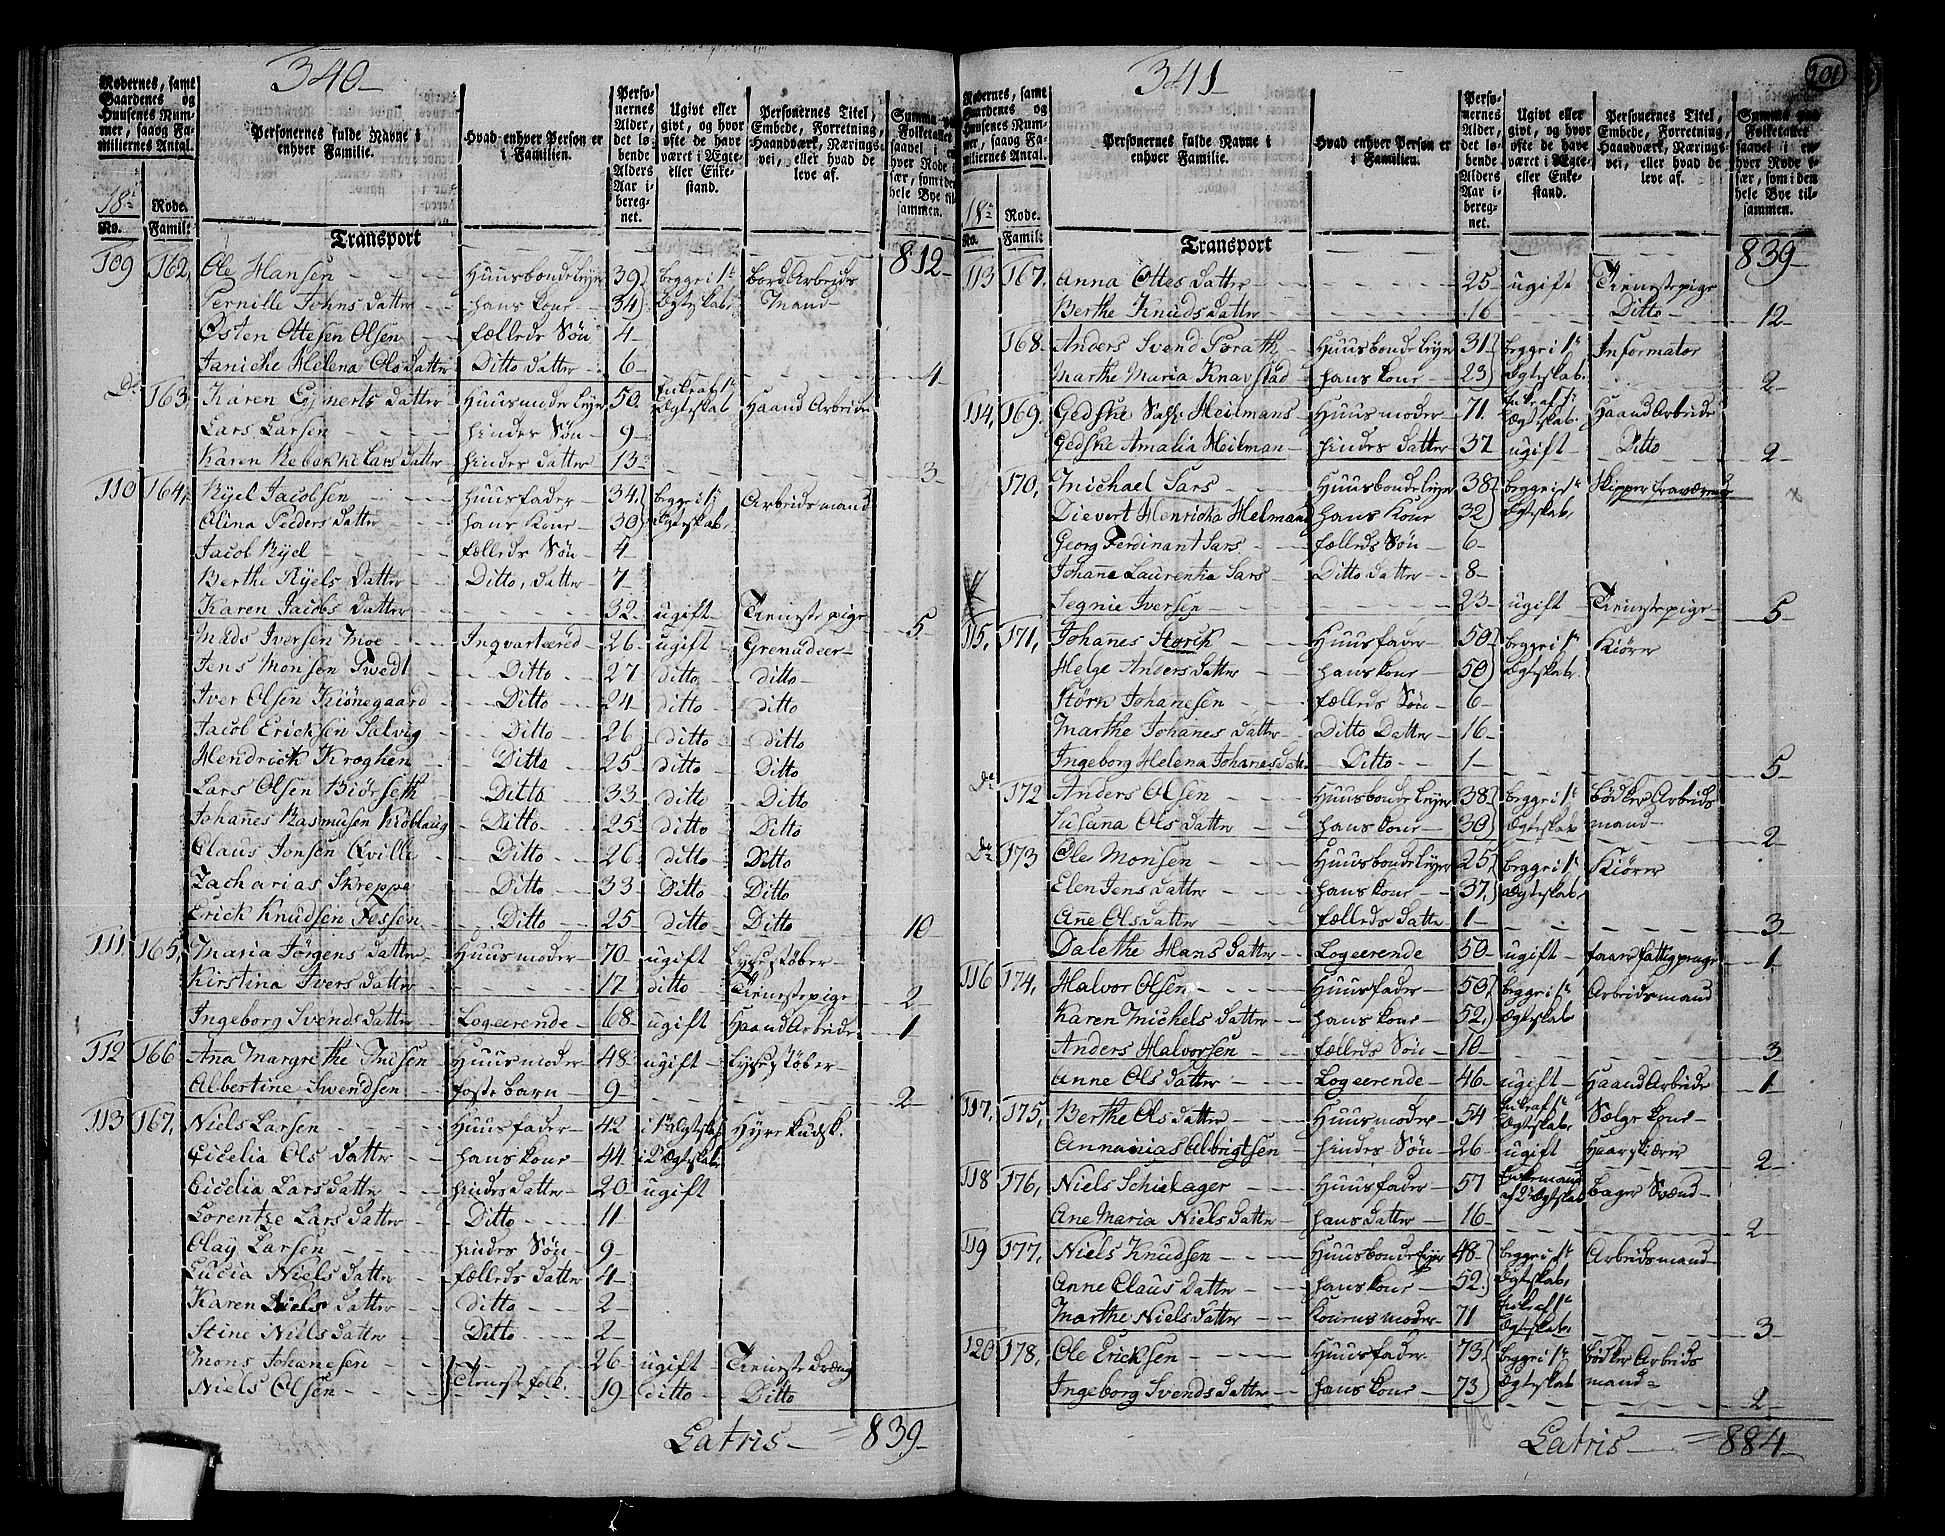 340
Rodernes, samt Gaardenes og Huusenes Nummer, saavog Familiernes Antal.
Personernes fulde Navne i enhver Familie.
Hvad enhver Person er i Familien.
Personernes Alder, det løbende Alders Aar iberegnet.
Ugivt eller givt, og hvor ofte de have været i Ægte- eller Enkestand.
Personernes Titel, Embede, Forretning, Haandværk, Nærings-vei, eller hvad de leve af.
Summa paa Folketallet saavel i enhver Rode især, som i den hele Bye tilsammen.
18de Rode.
No. Famil:
Transport 812
109 162, Ole Hansen Huusbonde Leyer 39) begge i 1te bord Arbeids
Pernille Johns datter hans kone 34) Ægteskab Mand
Østen Ottesen Olsen fælleds Søn 4
Janiche Helena Ols datter Ditto datter 6 4
Do 163, Karen Ejnerts datter Huusmoder Leyer 50 Enke af 1te Ægteskab Haand Arbeide
Lars Larsen hindes Søn 9
Karen Rebekke Lars datter hindes datter 13 3
110 164, Kyel Jacobsen Huusfader 34) begge i 1te Arbeidsmand
Alina Peders datter hans kone 30) Ægteskab
Jacob Kyel fælleds Søn 4
Berthe Kyels datter Ditto, datter 7
Karen Jacobs datter 32 ugift Tieneste pige 5
Mads Iversen Moe Inqvarteered 26 ugift Grenadeer
Jens Monsen Twedt Ditto 27 ditto ditto
Iver Olsen Kiønegaard Ditto 24 ditto ditto
Jacob Ericksen Selvig Ditto 26 ditto ditto
Hendrick Kroghen Ditto 25 ditto Ditto
Lars Olsen Biørseth Ditto 33 ditto Ditto
Johannes Rasmusen Kiøblaug Ditto 25 ditto Ditto
Claus Jonsen Qville Ditto 26 ditto Ditto
Zacharias Skreppe Ditto 33 Ditto Ditto
Erick Knudsen Jessen Ditto 25 ditto Ditto 10
111, 165, Maria Jørgens datter Huusmoder 70 ugift Lyse støber
Kirstina Ivers datter 17 ditto Tienestepige 2
Ingeborg Svends datter Logeerende 68 ugift Haand Arbeide 1
112 166 Ana Margrethe Thisen Huusmoder 48 ugift Lyse støber
Albertine Swendsen foste barn 9 2
113 167, Niels Larsen Huusfader 42 i 1te Ægteskab Hyre kudsk.
Cicelia Ols datter hans kone 44 i 2te Ægteskab
Cicelia Lars datter hindes datter 20 ugift
Lorentze Lars datter Ditto 11
Olay Larsen hindes Søn 9
Lucia Niels datter fælleds datter 4
Karen Niels datter ditto 2
Stine Niels datter Ditto 2
Mons Johanesen Tieneste folk. 26 ugift Tieneste dreng
Niels Olsen 19 ditto Ditto
Latris 839
201
341
Rodernes, samt Gaardenes og Huusenes Nummer, saavog Familiernes Antal.
Personernes fulde Navne i enhver Familie.
Hvad enhver Person er i Familien.
Personernes Alder, det løbende Alders Aar iberegnet.
Ugivt eller givt, og hvor ofte de have været i Ægte- eller Enkestand.
Personernes Titel, Embede, Forretning, Haandværk, Nærings-vei, eller hvad de leve af.
Summa paa Folketallet saavel i enhver Rode især, som i den hele Bye tilsammen.
18de Rode.
No. Famil:
Transport 839
113 167, Anna Ottes datter 25 ugift Tienestepige
Berthe Knuds datter 16 Ditto 12
168 Anders Svend Porath Huusbonde Leyer 31) begge i 1te Informator
Marthe Maria Knavstad hans kone 23) Ægteskab 2
114, 169, Gedske Sal: Heilmans Huusmoder 71 Enke af 1te Ægteskab Haand Arbeide
Gedske Amalia Heilman hindes datter 37 ugift Ditto 2
170, Michael Sars Huusbonde Leyer 38) begge i 1te Skipper fraværende
Dievert Henricka Helmand hans kone 32) Ægteskab
Georg Ferdinant Sars fælleds Søn 6
Johanne Laurentia Sars Ditto datter 8
Segnie Iversen 23 ugift Tienestepige 5
115, 171, Johanes Storck Huusfader 50) begge i 1te Kiører
Helge Anders datter hans kone 50) Ægteskab
Størk Johanesen fælleds Søn 6
Marthe Johanes datter Ditto Datter 16
Ingeborg Helena Johanes datter Ditto 1 5
do 172 Anders Olsen Huusbonde Leyer 38) begge i 1te bødker Arbeids
Susana Ols datter hans kone 30) Ægteskab mand 2
Do 173 Ole Monsen Huusbonde Leyer 25) begge i 1te Kiører
Elen Jens datter hans kone 37) Ægteskab
Anne Ols datter fælleds datter 1 3
Dalethe Hans datter Logeerende 50 ugift faaer fattigpenge 1
116 174, Halvor Olsen Huusfader 50) begge i 1te Arbeidsmand
Karen Michels datter hans kone 52) Ægteskab
Anders Halvorsen fælleds Søn 10 3
Anne Ols datter Logeerende 46 ugift Haand Arbeide 1
117, 175, Berthe Ols datter Huusmoder 54 Enke af 1te Ægteskab Sælge kone
Annanias Albrigtsen hindes Søn 26 ugift Haarskiærer 2
118 176, Niels Schielager Huusfader 57 Enkemand af 2te Ægteskab bager Svend
Ane Maria Niels datter hans datter 16 2
119 177, Niels Knudsen Huusbonde Leyer 48) begge i 1te Arbeidsmand
Anne Claus datter hans kone 52) Ægteskab
Marthe Niels datter konens moder 71 Enke af 1te Ægteskab 3
120 178, Ole Ericksen Huusfader 73) begge i 1te bødker Arbeids
Ingeborg Svends datter hans kone 73) Ægteskab mand 2
Latris 884